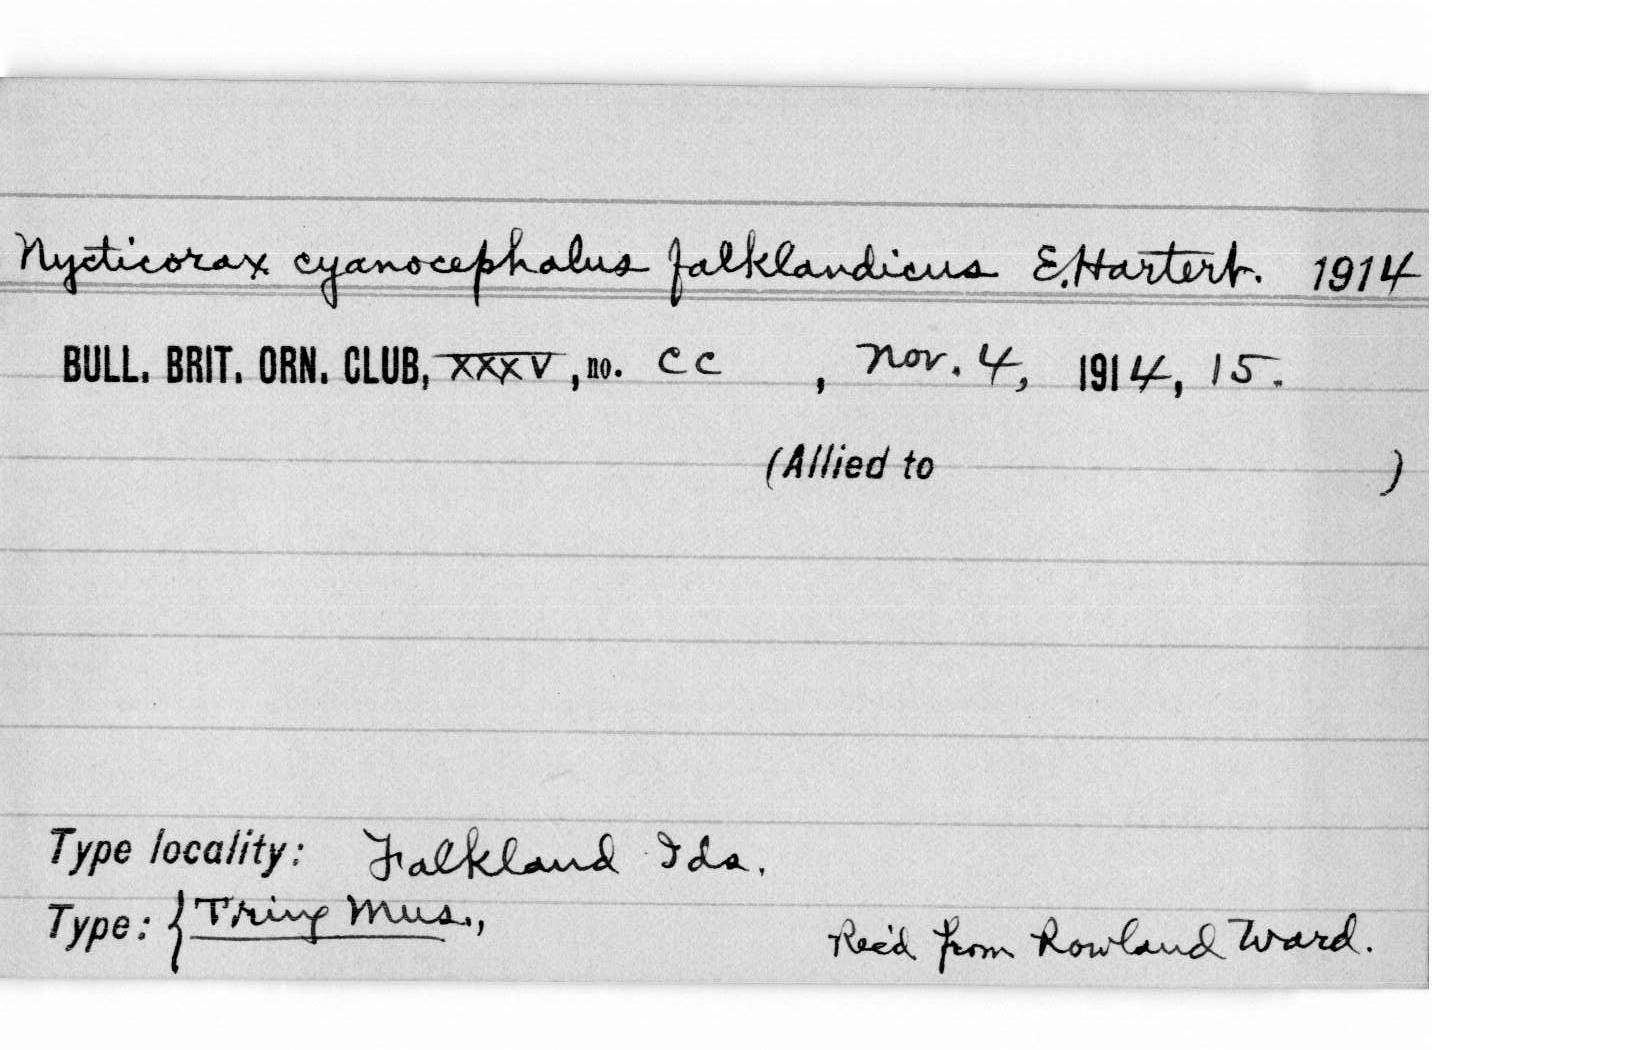 Nycticorax cyanocephalus falklandicus E. Hartert. 1914
BULL. BRIT. ORN. CLUB, XXXV, no. CC , Nov. 4, 1914, 15.
(Allied to )
Type locality: Falkland Ids.
Type: { Tring Mus., Rec'd from Rowland Ward.